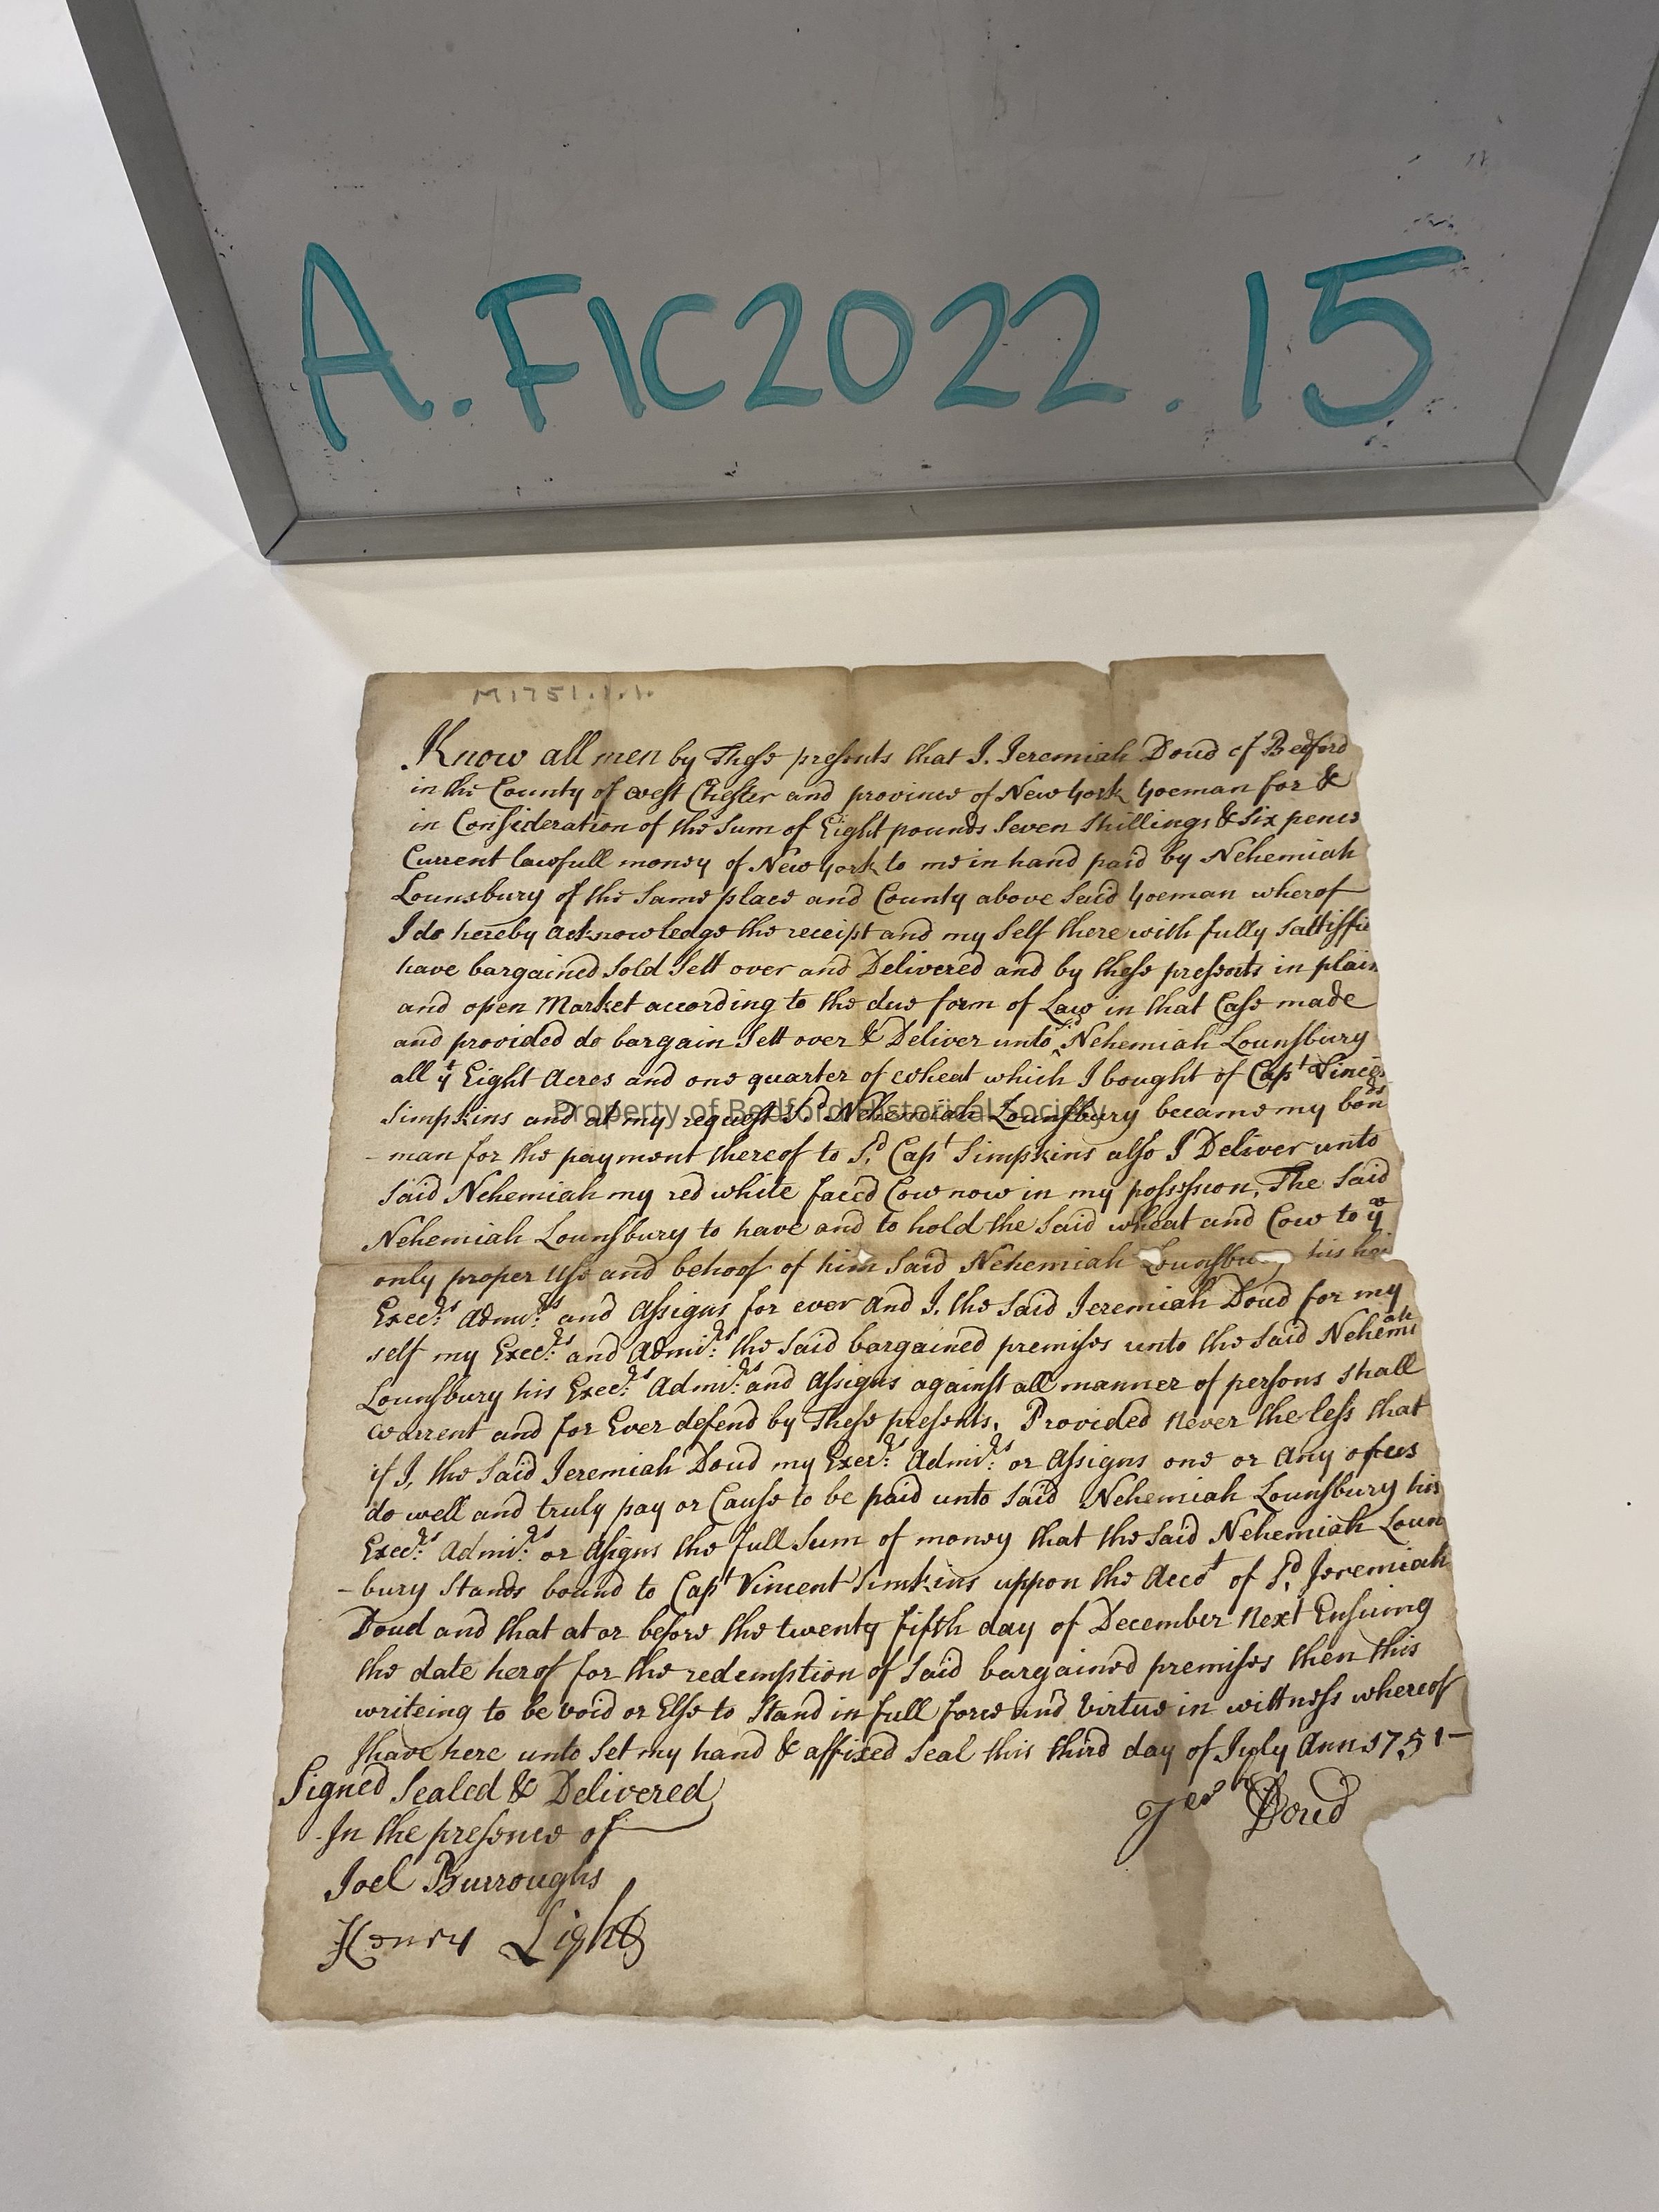 A.FIC2022.15
M1751.1.1.
Know all men by These presents that I. Jeremiah Doud of Bedford
in the County of west Chester and province of New york yoeman for &
in Consideration of the Sum of Eight pounds Seven Shillings & Six pence
Current lawfull money of New york to me in hand paid by Nehemiah
Lounsbury of the Same place and County above Said yoeman wherof
I do hereby acknowledge the receipt and my Self there with fully Sattisfie
have bargained Sold Sett over and Delivered and by these presents in plain
and open Market according to the due form of Law in that Case made
and provided do bargain Sett over & Deliver unto Sd Nehemiah Lounsbury
all ye Eight Acres and one quarter of wheat which I bought of Capt Vince
Simpkins and at my request Sd Nehemiah Lounsbury became my bonds
Property of Bedford Historical Society
- man for the payment thereof to Sd Capt Simpkins also I Deliver unto
Said Nehemiah my red white faced Cow now in my possession, The Said
Nehemiah Lounsbury to have and to hold the Said wheat and Cow to ye
only proper Use and behoof of him Said Nehemiah Lounsbu his hei
Execrs: Admirs: and Assigns for ever and I, the Said Jeremiah Doud for my
self my Execrs: and Admirs: the Said bargained premises unto the Said Nehemiah
Lounsbury his Execrs: Admirs: and Assigns against all manner of persons Shall
warrent and for Ever defend by These presents, Provided Never the less that
if I, the Said Jeremiah Doud my Execrs: Admirs: or Assigns one or any of us
do well and truly pay or Cause to be paid unto Said Nehemiah Lounsbury his
Execrs: Admirs: or Asigns the full Sum of money that the Said Nehemiah Loun
- bury Stands bound to Capt Vincent Simkins uppon the Acct of Sd Jeremiah
Doud and that at or before the twenty fifth day of December Next Ensuing
the date herof for the redemption of Said bargained premises then this
writeing to be void or Else to Stand in full force and Virtue in wittness whereof
I have here unto Set my hand & affixed Seal this third day of July Ann 1751-
Signed Sealed & Delivered
In the presence of
Jerh Doud
Joel Burroughs
Henry Light